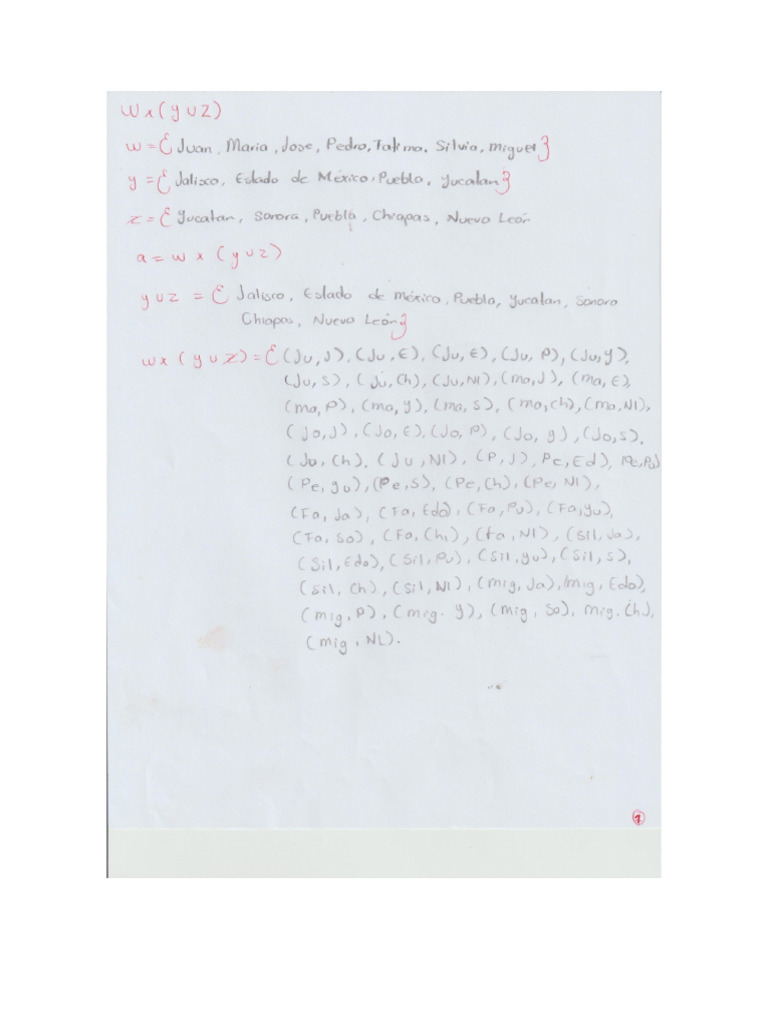 W x (y U Z)
w = { Juan, Maria, Jose, Pedro, Silvia, miguel }
y = { Jalisco, Estado de México, Puebla, yucatan }
z = { yucatan, Sonora, Puebla, Chiapas, Nuevo León
a = w x (y U z)
y U z = { Jalisco, Estado de méxico, Puebla, yucatan, Sonora
Chiapas, Nuevo León }
w x (y U Z) = { (Ju, J), (Ju, E), (Ju, E), (Ju, P), (Ju, y),
(Ju, S), (Ju, Ch), (Ju, Nl), (ma, J), (ma, E),
(ma, P), (ma, y), (ma, s), (ma, ch), (ma, Nl),
(Jo, J), (Jo, E), (Jo, P), (Jo, y), (Jo, s),
(Jo, Ch), (Ju, NL), (P, J), Pe, Ed), Pe, Pu)
(Pe, yu), (Pe, S), (Pe, Ch), (Pe, Nl),
(Fa, Ja), (Fa, Edo), (Fa, Pu), (Fa, yu),
(Fa, So), (Fa, Ch), (fa, Nl), (Sil, Ja),
(Sil, Edo), (Sil, Pu), (Sil, yu), (Sil, s),
(Sil, Ch), (Sil, Nl), (mig, Ja), (mig, Edo),
(mig, P), (mig. y), (mig, So), mig. Ch),
(mig, NL).
1